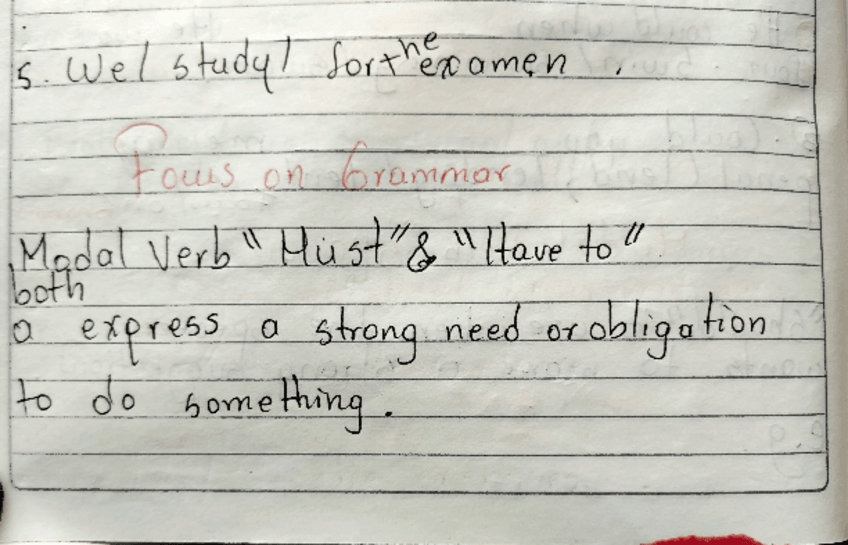 5. Wel study l for the examen .
Focus on Grammar
Modal Verb "Must" & "Have to"
both
a express a strong need or obligation
to do something.